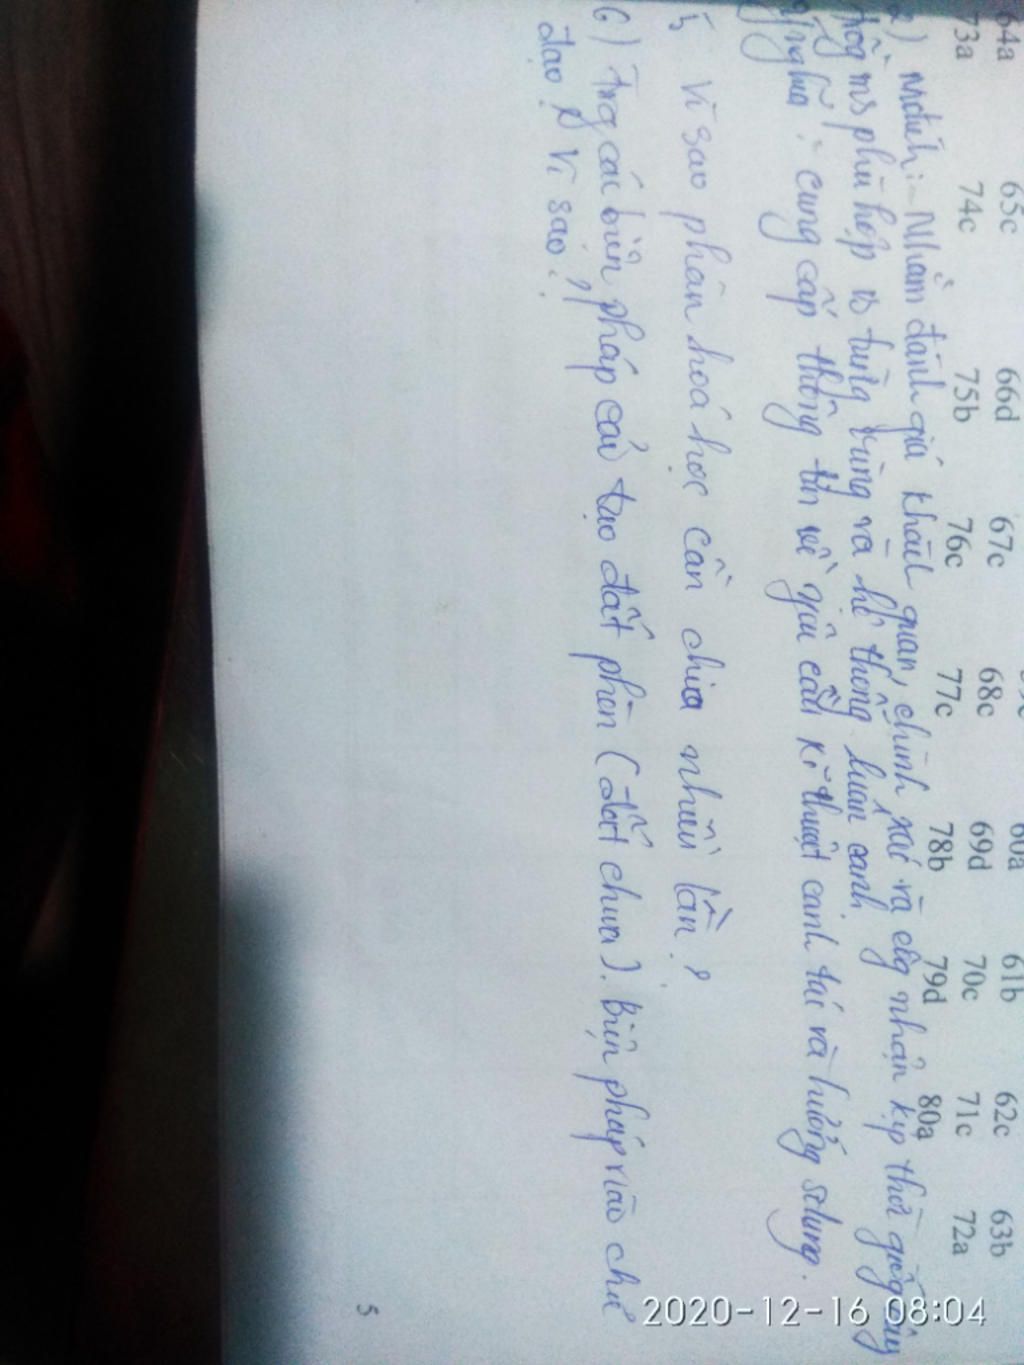 60a 61b 62c 63b
64a 65c 66d 67c 68c 69d 70c 71c 72a
73a 74c 75b 76c 77c 78b 79d 80a
2) Mđích: - Nhằm đánh giá khách quan, chính xác và công nhận kịp thời giống cây
trồng ms phù hợp vs từng vùng và hệ thống luân canh
ý nghĩa: cung cấp thông tin về yêu cầu kĩ thuật canh tác và hướng sdụng.
5, Vì sao phân hoá học cần chia nhiều lần?
6) Trg các biện pháp cải tạo đất phèn (đất chua). Biện pháp nào chủ
đạo? Vì sao?
5
2020-12-16 08:04